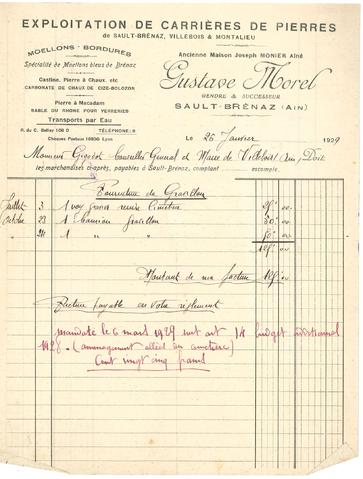 EXPLOITATION DE CARRIÈRES DE PIERRES
de SAULT-BRÉNAZ, VILLEBOIS & MONTALIEU
MOELLONS - BORDURES
Spécialité de Moellons bleus de Brénaz
Castine, Pierre à Chaux, etc.
CARBONATE DE CHAUX DE CIZE-BOLOZON
Pierre à Macadam
SABLE DU RHÔNE POUR VERRERIES
Transports par Eau
R. du C. Belley 100 D
TÉLÉPHONE: 8
Chèques Postaux 16830 Lyon
Ancienne Maison Joseph MONIER Aîné
Gustave Morel
GENDRE & SUCCESSEUR
SAULT-BRÉNAZ (AIN)
Le 26 Janvier 1929
Monsieur Conseiller General et Maire de Villebois Ain, Doit
les marchandises ci-après, payables à Sault-Brénaz, comptant escompte.
Fourniture de Gravillon
Juillet 3 1 gravier remise Cimetière 25 00
Octobre 23 1 Camion Gravillon 50 00
24 1 " " 50 00
125 00
Montant de ma facture 125 00
Facture payable en votre règlement
mandaté le 6 mars 1929 sur art 14 budget additionnel
1928 - (aménagement allées du cimetière)
Cent vingt cinq francs